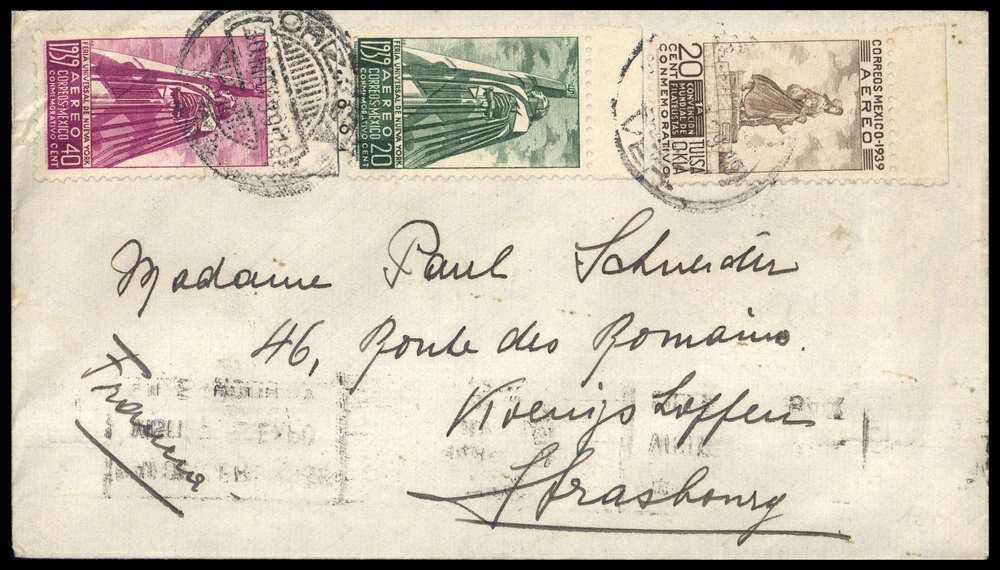 1939
AEREO
CORREOS·MEXICO
CONMEMORATIVO
FERIA UNIVERSAL DE NUEVA YORK
CENT 40
1939
AEREO
CORREOS·MEXICO
CONMEMORATIVO
FERIA UNIVERSAL DE NUEVA YORK
CENT 20
CORREOS MEXICO-1939
AEREO
20 CENT
1A CONVENCION MUNDIAL DE FILATELISTAS
TULSA OKLA
CONMEMORATIVO
Madame Paul Schneider
46, Route des Romains.
Koenigshoffen
Strasbourg
France